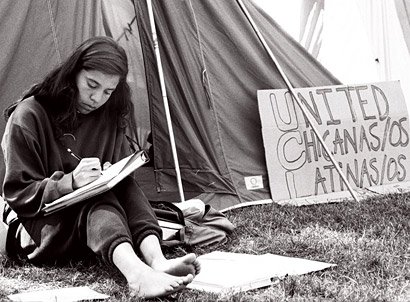 UNITED
CHICANAS/OS
LATINAS/OS